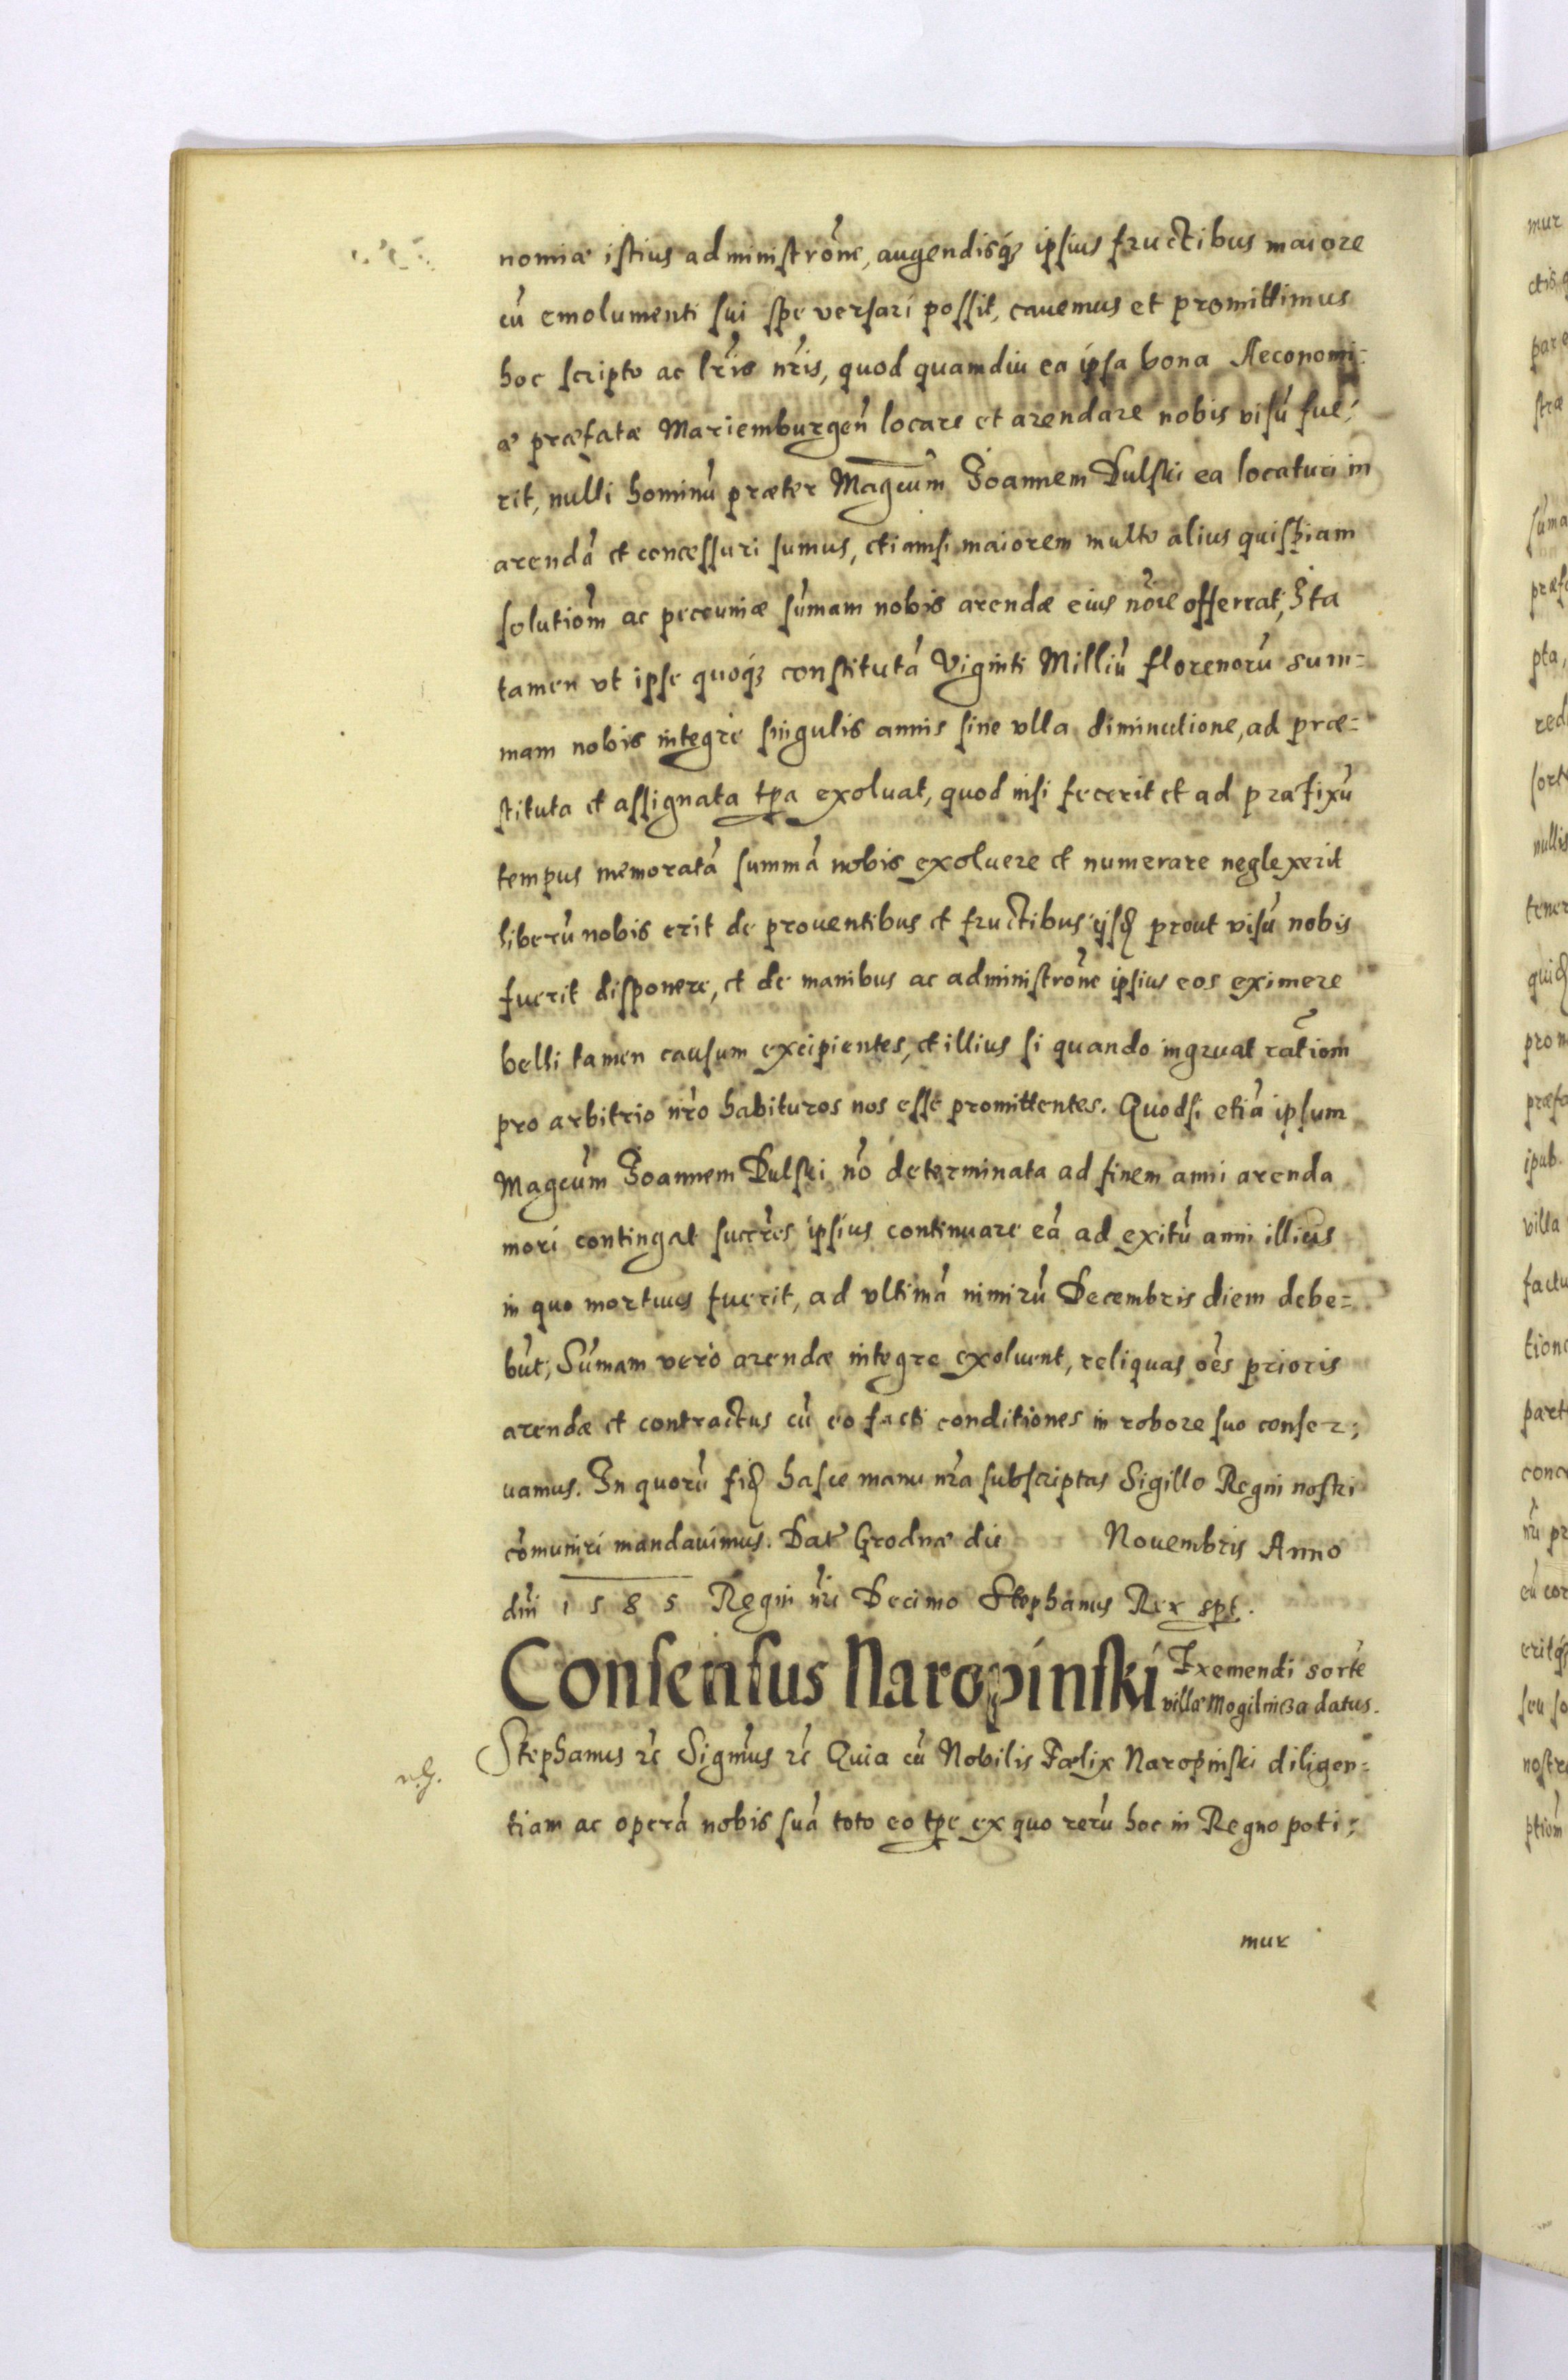 nomiæ istius administrõne, augendisq́ꝫ ipsius fructibus maiore
cũ emolumenti sui spe versari possit, cauemus et promittimus
hoc scripto ac lr̃is nr̃is, quod quamdiu ea ipsa bona Aeconomi=
æ præfatæ Mariemburgen̄ locare et arendare nobis visũ fue=
rit, nulli hominũ præter Magcũm Joannem Dulski ea locaturi in
arendã et concessuri sumus, etiamsi maiorem multo alius quispiam
solutiõm ac pecuniæ sũmam nobis arendæ eius nõie offerrat, Ita
tamen vt ipse quoq́ꝫ constitutã Viginti Milliũ florenorũ sum=
mam nobis integre singulis annis sine vlla diminutione, ad præ=
stituta et assignata tp̃a exoluat, quod nisi fecerit et ad præfixũ
tempus memoratã summã nobis exoluere et numerare neglexerit
liberũ nobis erit de prouentibus et fructibus ijsꝺ prout visũ nobis
fuerit disponere, et de manibus ac administrõne ipsius eos eximere
belli tamen causum excipientes, et illius si quando ingruat ratiõm
pro arbitrio nr̃o habituros nos esse promittentes. Quodsi etiã ipsum
Magcũm Joannem Dulski nõ determinata ad finem anni arenda
mori contingat succr̃es ipsius continuare eã ad exitũ anni illius
in quo mortuus fuerit, ad vltimã nimirũ Decembris diem debe=
bũt, Sũmam verò arendæ integre exoluent, reliquas oẽs prioris
arendæ et contractus cũ eo facti conditiones in robore suo conser=
uamus. In quorũ fiꝺ hasce manu nr̃a subscriptas Sigillo Regni nostri
cõmuniri mandauimus. Dat̃ Grodnæ die Nouembris Anno
dñi 1585 Regni nr̃i Decimo Stephanus Rex spt̃.
Consensus Naropinski Exemendi sortẽ
villæ Mogilnicza datus.
Stephanus ꝛc Signũs ꝛc Quia cũ Nobilis Fælix Naropinski diligen=
tiam ac operã nobis suã toto eo tp̃e ex quo rerũ hoc in Regno poti=
mur